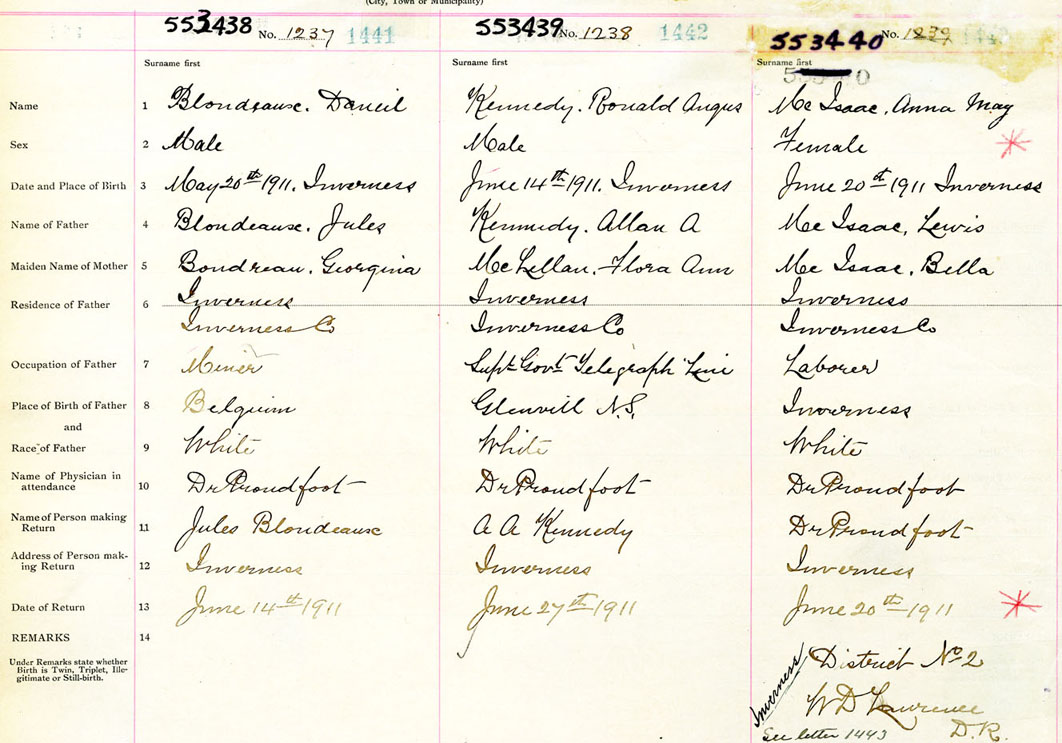 (City, Town or Municipality)
553438 No. 1237 1441 553439 No. 1238 1442 553440 No. 1239
Surname first Surname first Surname first
Name 1 Blondeause. Daneil Kennedy. Ronald Angus Mc Isaac, Anna May
Sex 2 Male Male Female
Date and Place of Birth 3 May 20th 1911. Inverness June 14th 1911. Inverness June 20th 1911 Inverness
Name of Father 4 Blondeause. Jules Kennedy. Allan A Mc Isaac, Lewis
Maiden Name of Mother 5 Boudreau. Georgina McLellan. Flora Ann Mc Isaac, Bella
Residence of Father 6 Inverness Inverness Inverness
Inverness Co Inverness Co Inverness Co
Occupation of Father 7 Miner Supt Govt Telegraph Line Laborer
Place of Birth of Father 8 Belguim Glenvill N.S. Inverness
and
Race of Father 9 White White White
Name of Physician in
attendance 10 Dr Proudfoot Dr Proudfoot Dr Proudfoot
Name of Person making
Return 11 Jules Blondeause A A Kennedy Dr Proudfoot
Address of Person mak-
ing Return 12 Inverness Inverness Inverness
Date of Return 13 June 14th 1911 June 27th 1911 June 20th 1911
REMARKS 14
Under Remarks state whether
Birth is Twin, Triplet, Ille-
gitimate or Still-birth.
Inverness District No 2
W D Lawrence
D.R.
See letter 1443